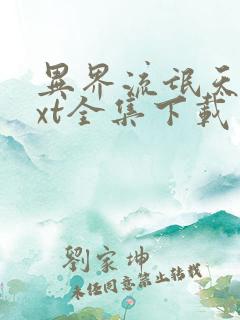 異界流氓天
xt全集下载
劉家坤
未经同意禁止转载